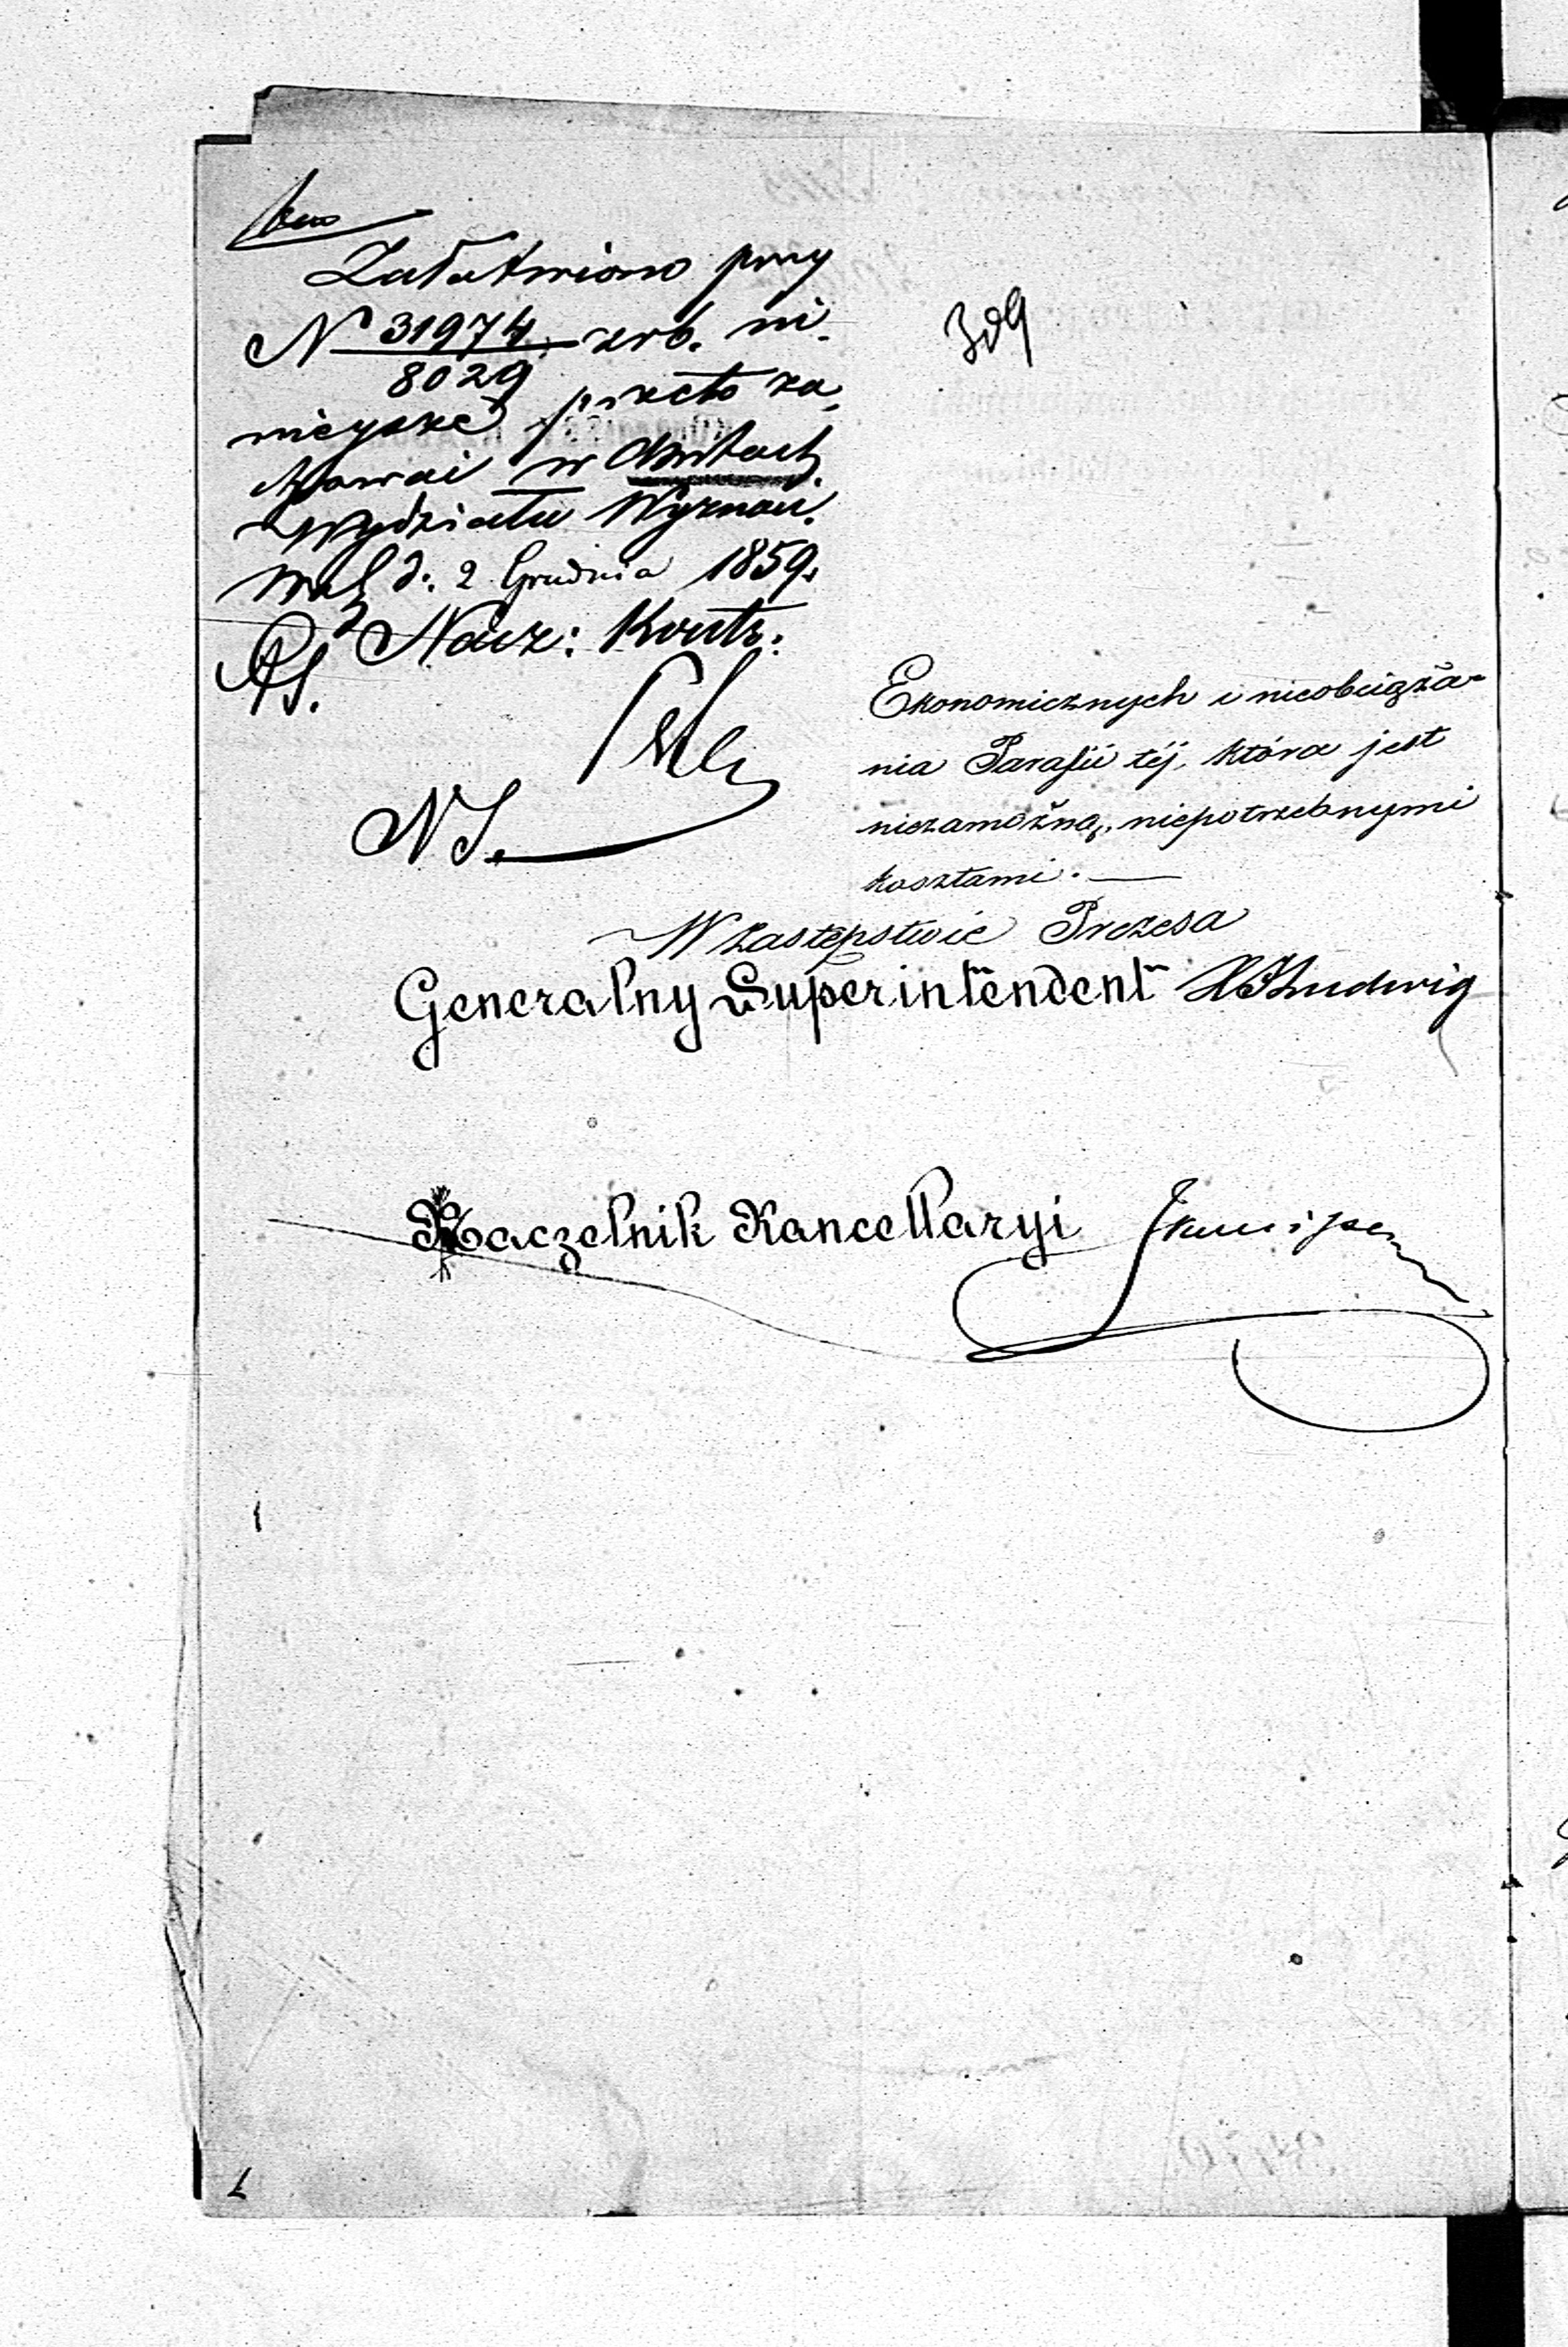 Załatwiono przy
N 31974/8029 zrb. ni-
nieysze przeto za-
chować w aktach
Wydziału Wyznań.
d: 2 Grudnia 1859.
Nacz: Kontr:
NS.
309
Ekonomicznych i nieobciąża-
nia Parafii téj, która jest
niezamożną, niepotrzebnymi
kosztami. —
W Zastępstwie Prezesa
Generalny Superintendent Ludwig
Naczelnik Kancellaryi